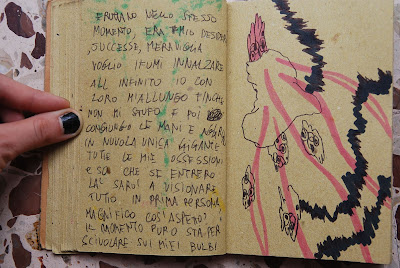 ERUTTANO NELLO STESSO
MOMENTO, ERA MIO DESIDERIO
SUCCESSE, MERAVIGLIA
VOGLIO I FUMI INNALZARE
ALL INFINITO IO CON
LORO MI ALLUNGO FINCHÉ
NON MI STUFO E POI
CONGIUNGO LE MANI E NEGRA
IN NUVOLA UNICA GIGANTE
TUTTE LE MIE OSSESSIONI
E SO CHE SE ENTRERÒ
LÀ SARÒ A VISIONARE
TUTTO IN PRIMA PERSONA
MAGNIFICO COS'ASPETTO?
IL MOMENTO PURO STA PER
SCIVOLARE SUI MIEI BULBI